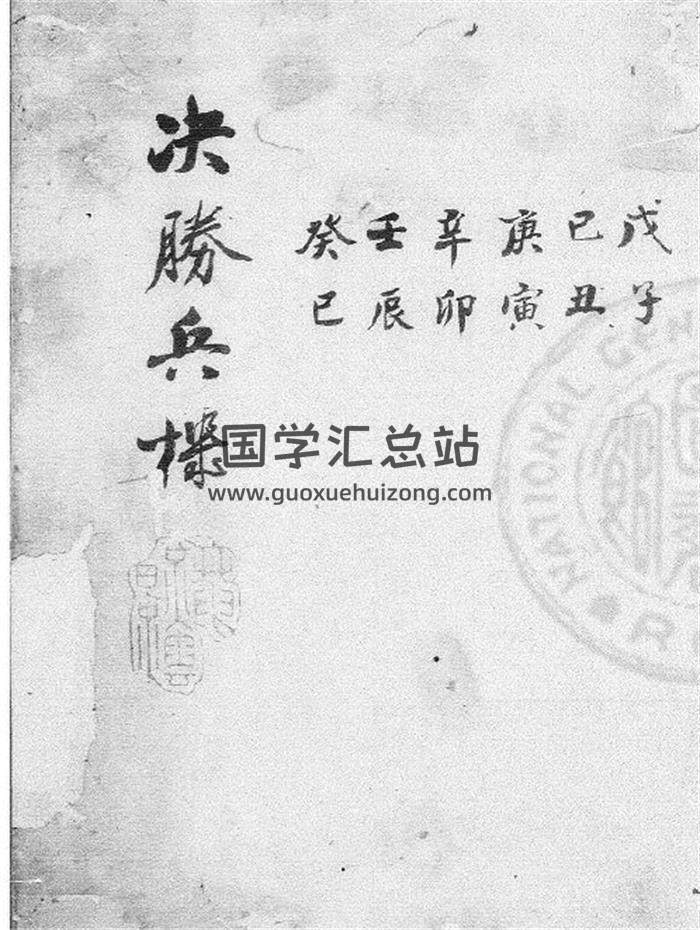 戊子
己丑
庚寅
辛卯
壬辰
癸巳
决勝兵機
国学汇总站
www.guoxuehuizong.com
NATIONAL CEN